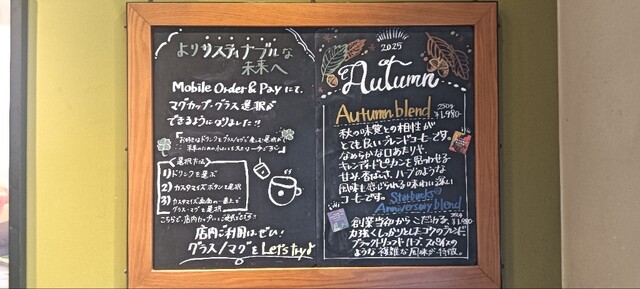 よりサスティナブルな
未来へ
Mobile Order & Pay にて、
マグカップ・グラス選択が
できるようになりました!!
選択方法
1) ドリンクを選ぶ
2) カスタマイズボタンを選択
3) カスタマイズ画面の一番上で
グラス・マグを選択
店内ご利用はぜひ!
グラス/マグを Let's try♪
2025
Autumn
Autumn blend
250g
¥1,980-
秋の味覚との相性が
とても良いブレンドコーヒーです。
なめらかな口あたりや、
キャンディドピカンを思わせる
甘み、香ばしさ、ハーブのような
風味も感じられる味わい深い
コーヒーです。
Starbucks
Anniversary blend
創業当初からこだわる、
250g
¥1,980
力強くしっかりしたコクのブレンド
ブラックトリュフ、ハーブ、スパイスの
ような複雑な風味が特徴。